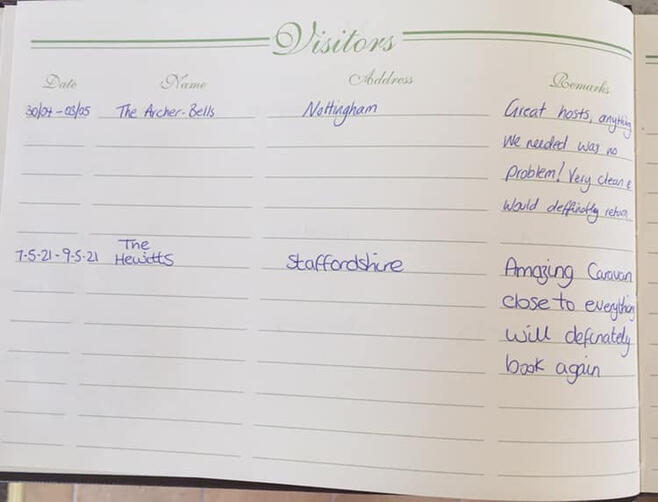 Visitors
Date Name Address Remarks
30/04 - 03/05 The Archer-Bells Nottingham Great hosts, anything
We needed was no
problem! Very clean &
would deffinatly return
7-5-21 - 9-5-21 The Hewitts Staffordshire Amazing Caravan
close to everything
will definately
book again